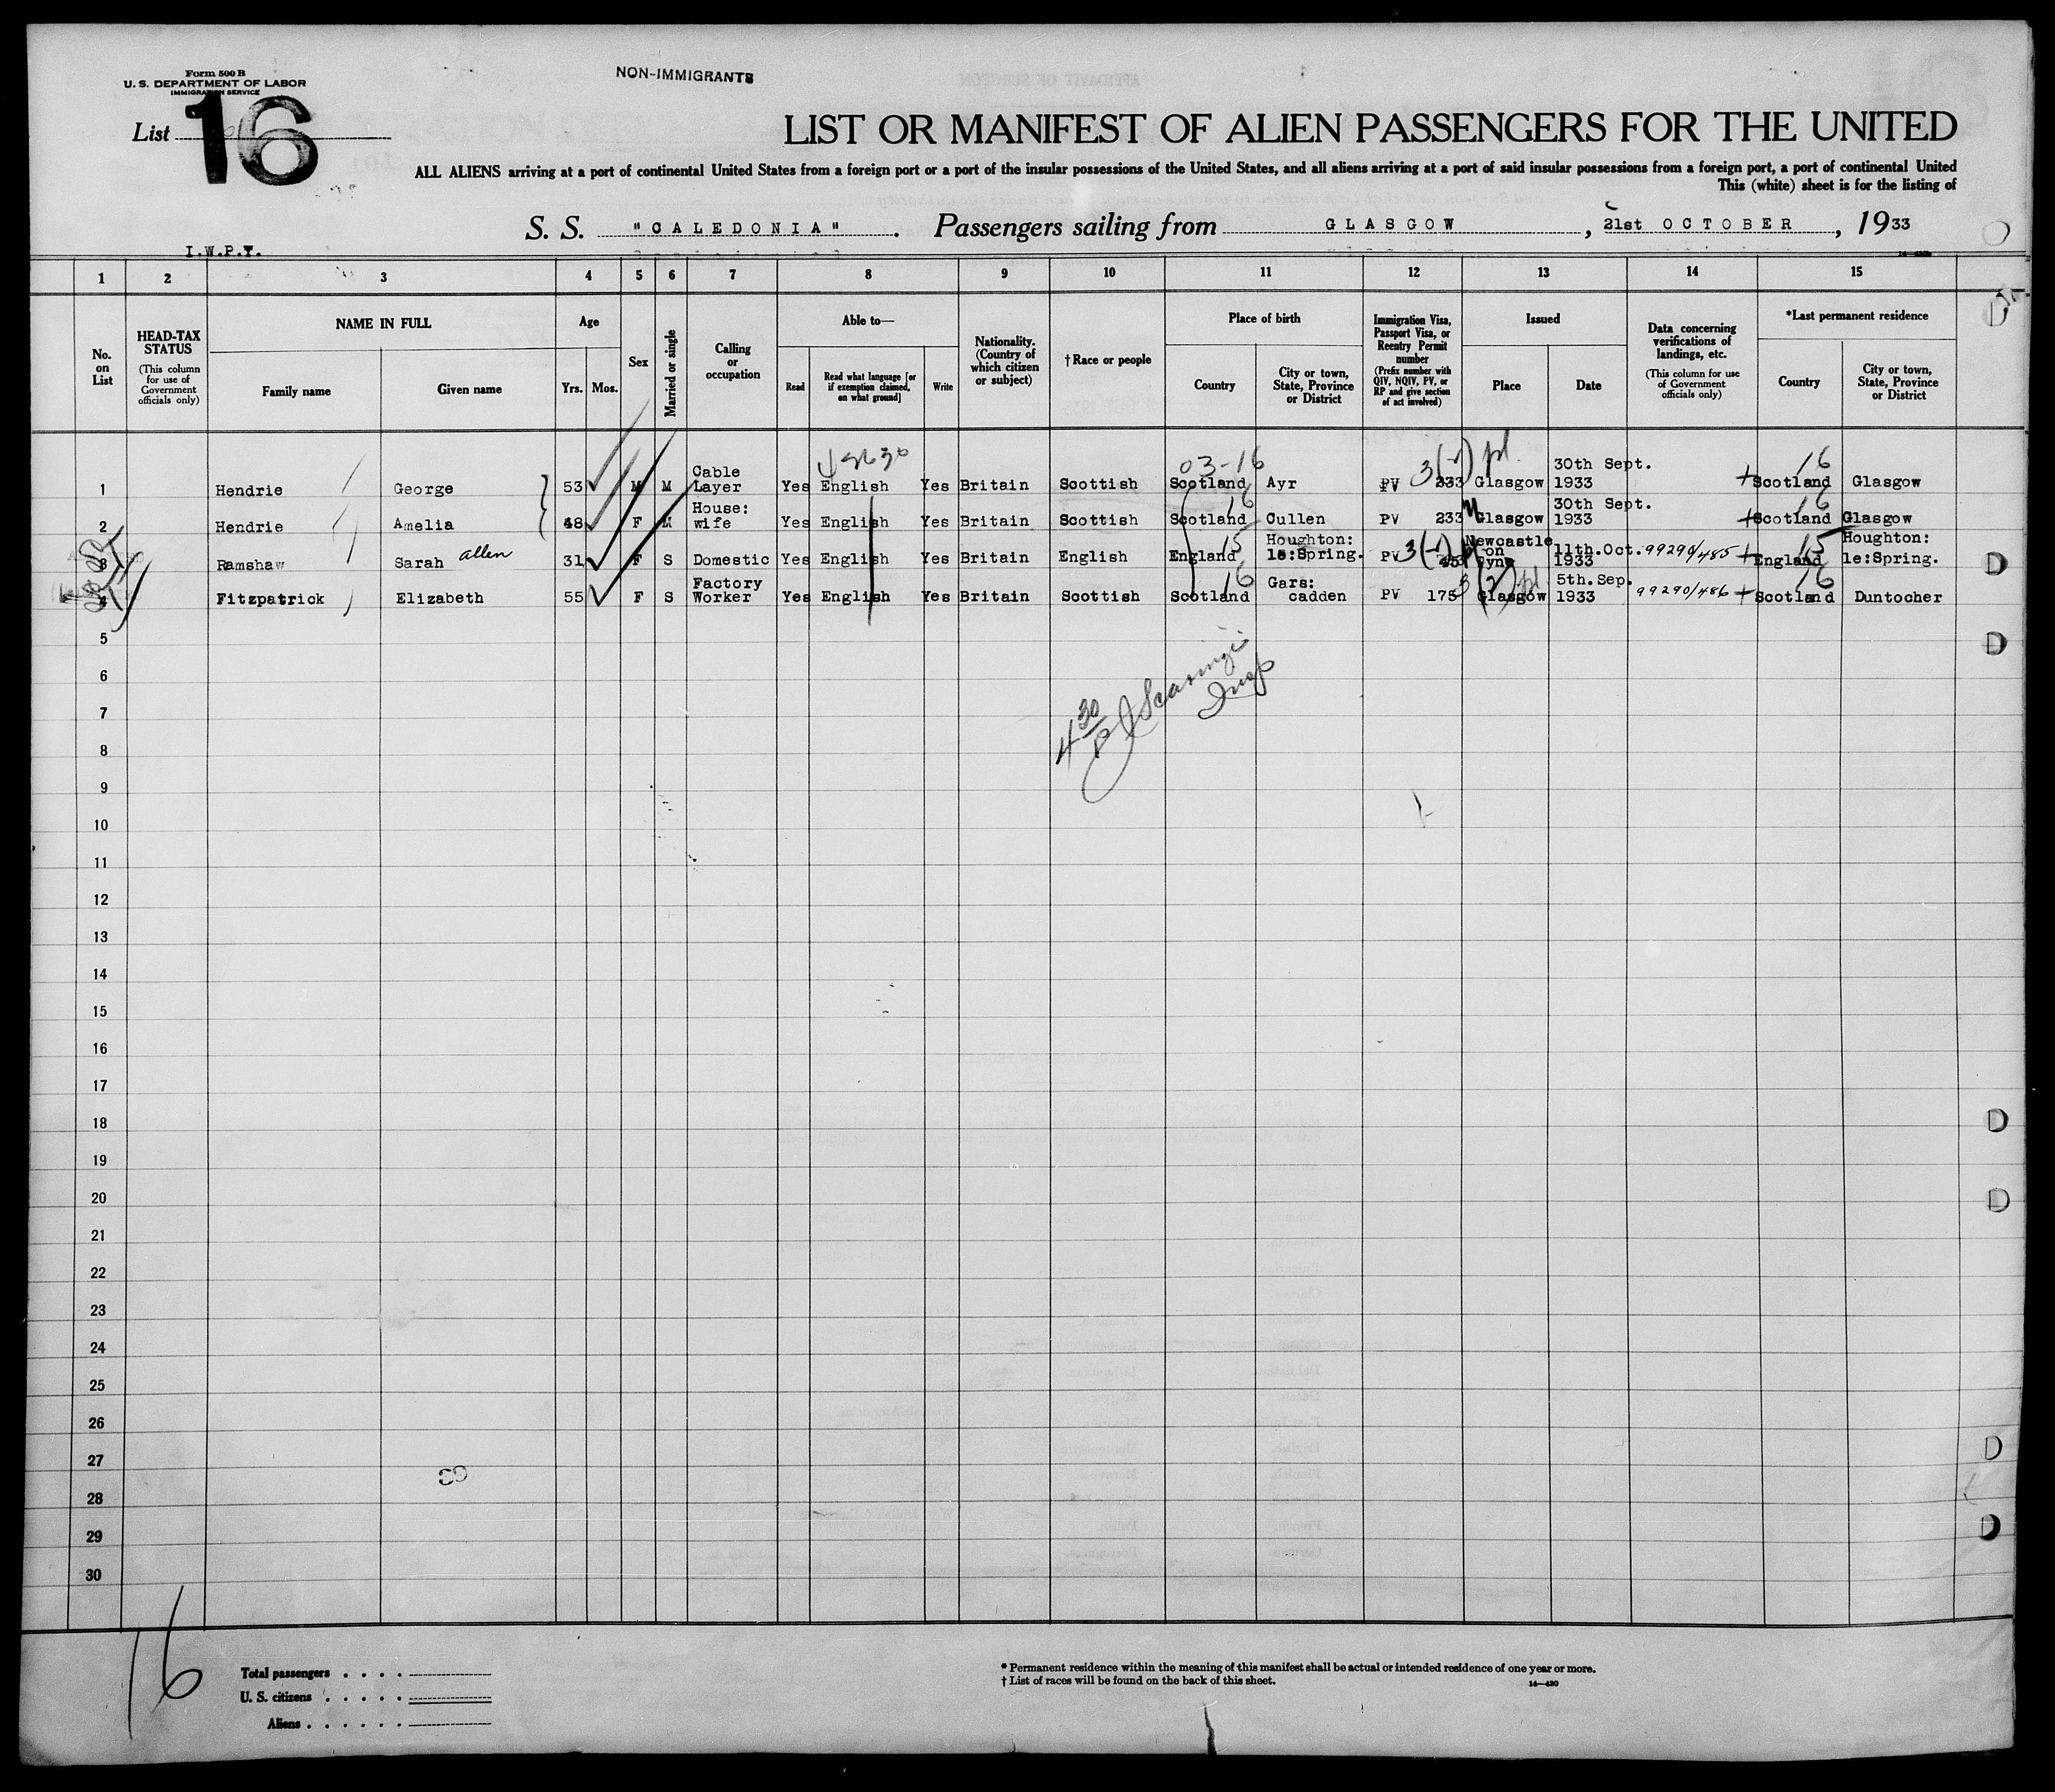 Form 500 B
U. S. DEPARTMENT OF LABOR
IMMIGRATION SERVICE
NON-IMMIGRANTS
List 16
LIST OR MANIFEST OF ALIEN PASSENGERS FOR THE UNITED
ALL ALIENS arriving at a port of continental United States from a foreign port or a port of the insular possessions of the United States, and all aliens arriving at a port of said insular possessions from a foreign port, a port of continental United
This (white) sheet is for the listing of
S. S. "CALEDONIA". Passengers sailing from GLASGOW, 21st OCTOBER, 1933
I.W.P.Y.
1 2 3 4 5 6 7 8 9 10 11 12 13 14 15
No. on List
HEAD-TAX STATUS
(This column for use of Government officials only)
NAME IN FULL
Family name Given name
Age
Yrs. Mos.
Sex
Married or single
Calling or occupation
Able to—
Read
Read what language [or if exemption claimed, on what ground]
Write
Nationality. (Country of which citizen or subject)
†Race or people
Place of birth
Country
City or town, State, Province or District
Immigration Visa, Passport Visa, or Reentry Permit number
(Prefix number with QIV, NQIV, PV, or RP and give section of act involved)
Issued
Place Date
Data concerning verifications of landings, etc.
(This column for use of Government officials only)
*Last permanent residence
Country
City or town, State, Province or District
03-16 3(-1) pl 16
1 Hendrie George 53 M M Cable Layer Yes English Yes Britain Scottish Scotland Ayr PV 233 Glasgow 30th Sept. 1933 Scotland Glasgow
16 16
2 Hendrie Amelia 48 F M House: wife Yes English Yes Britain Scottish Scotland Cullen PV 233 Glasgow 30th Sept. 1933 Scotland Glasgow
15 3(-1) 15
3 Ramshaw Sarah Allen 31 F S Domestic Yes English Yes Britain English England Houghton: le:Spring. PV 45 Newcastle on Tyne 11th.Oct. 1933 99290/485 England Houghton: le:Spring.
16 3(2) pl 16
4 Fitzpatrick Elizabeth 55 F S Factory Worker Yes English Yes Britain Scottish Scotland Gars: cadden PV 175 Glasgow 5th.Sep. 1933 99290/486 Scotland Duntocher
5
6
4 30 P
Insp
7
8
9
10
11
12
13
14
15
16
17
18
19
20
21
22
23
24
25
26
27
28
29
30
16
Total passengers
U. S. citizens
Aliens
* Permanent residence within the meaning of this manifest shall be actual or intended residence of one year or more.
† List of races will be found on the back of this sheet.
14—430